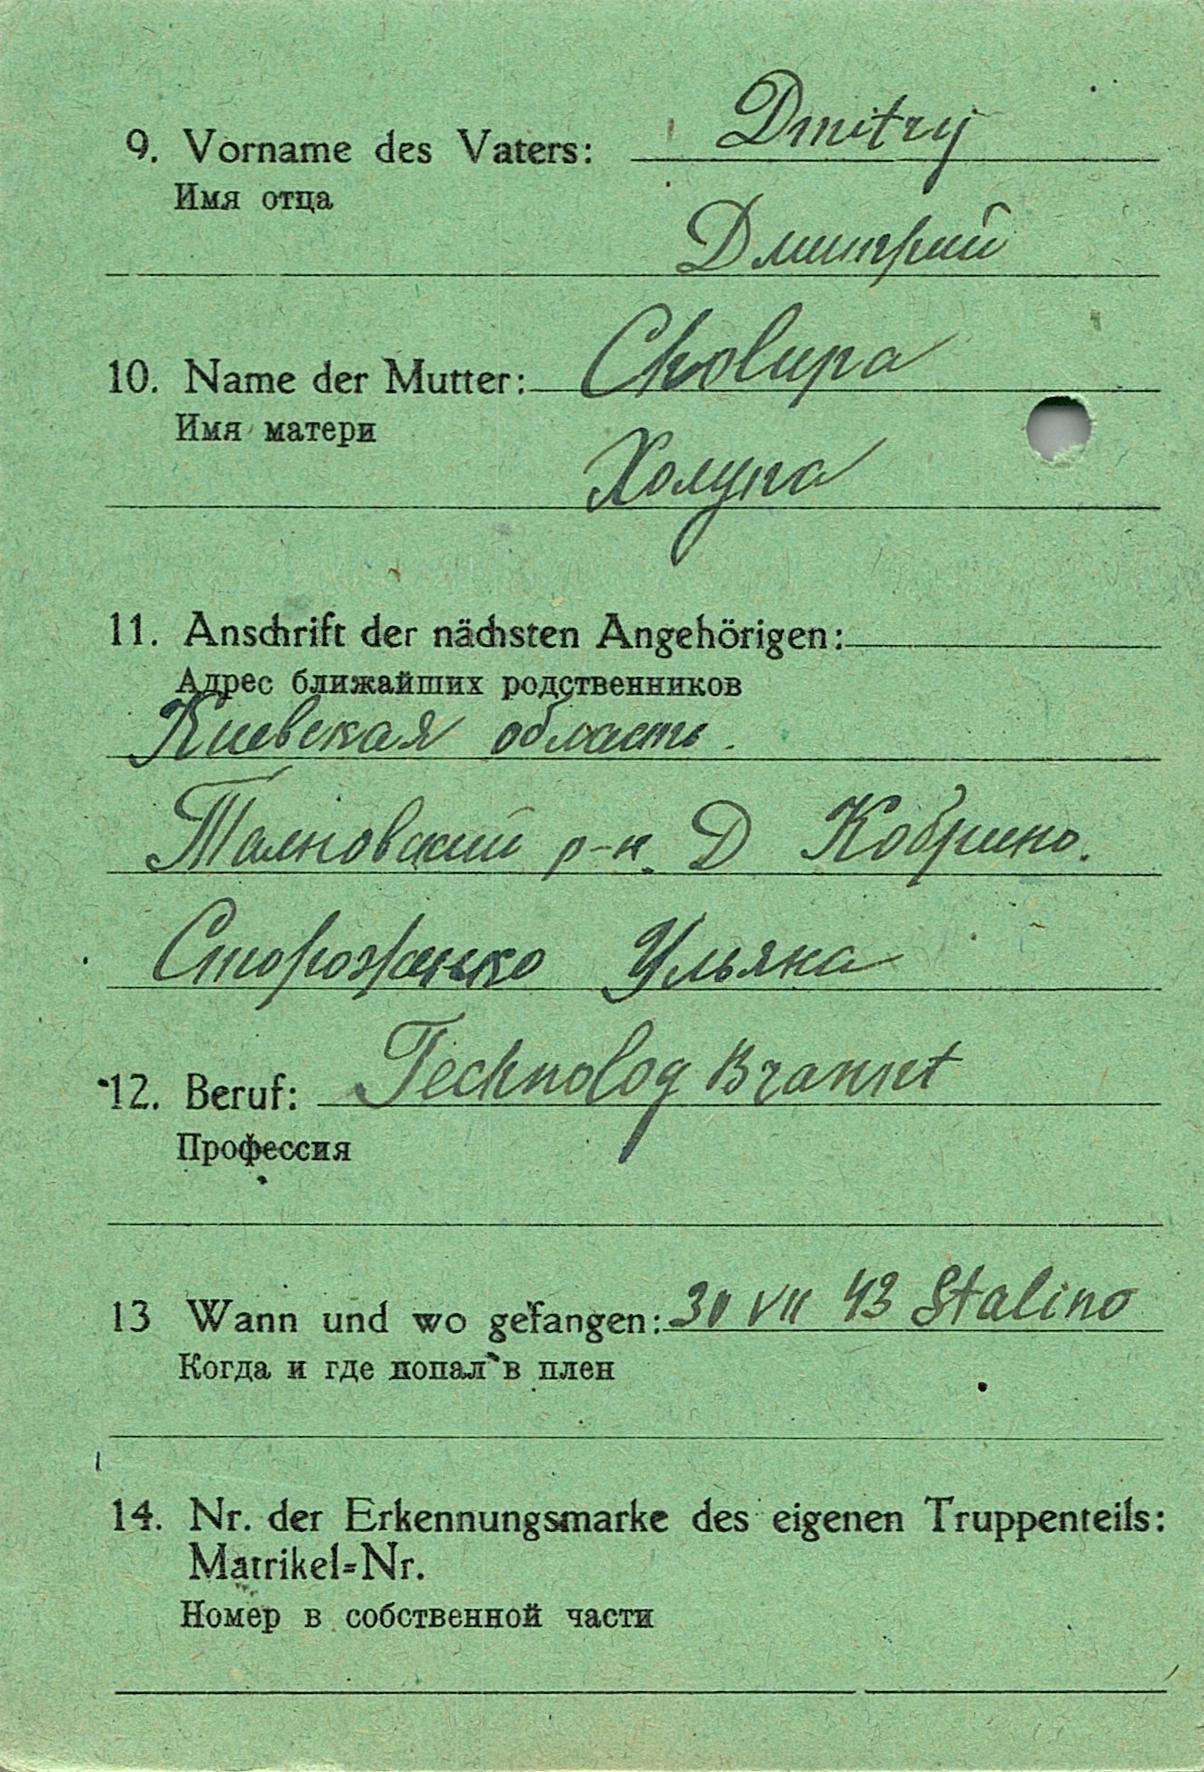 9. Vorname des Vaters: Dmitry
Имя отца
Дмитрий
10. Name der Mutter: Cholupa
Имя матери
Холупа
11. Anschrift der nächsten Angehörigen:
Адрес ближайших родственников
Киевская область.
Талновский р-н. Д Кобрино.
Стороженко Ульяна
12. Beruf: Technolog
Профессия
13 Wann und wo gefangen: VII 43 Stalino
Когда и где попал в плен
14. Nr. der Erkennungsmarke des eigenen Truppenteils:
Matrikel=Nr.
Номер в собственной части